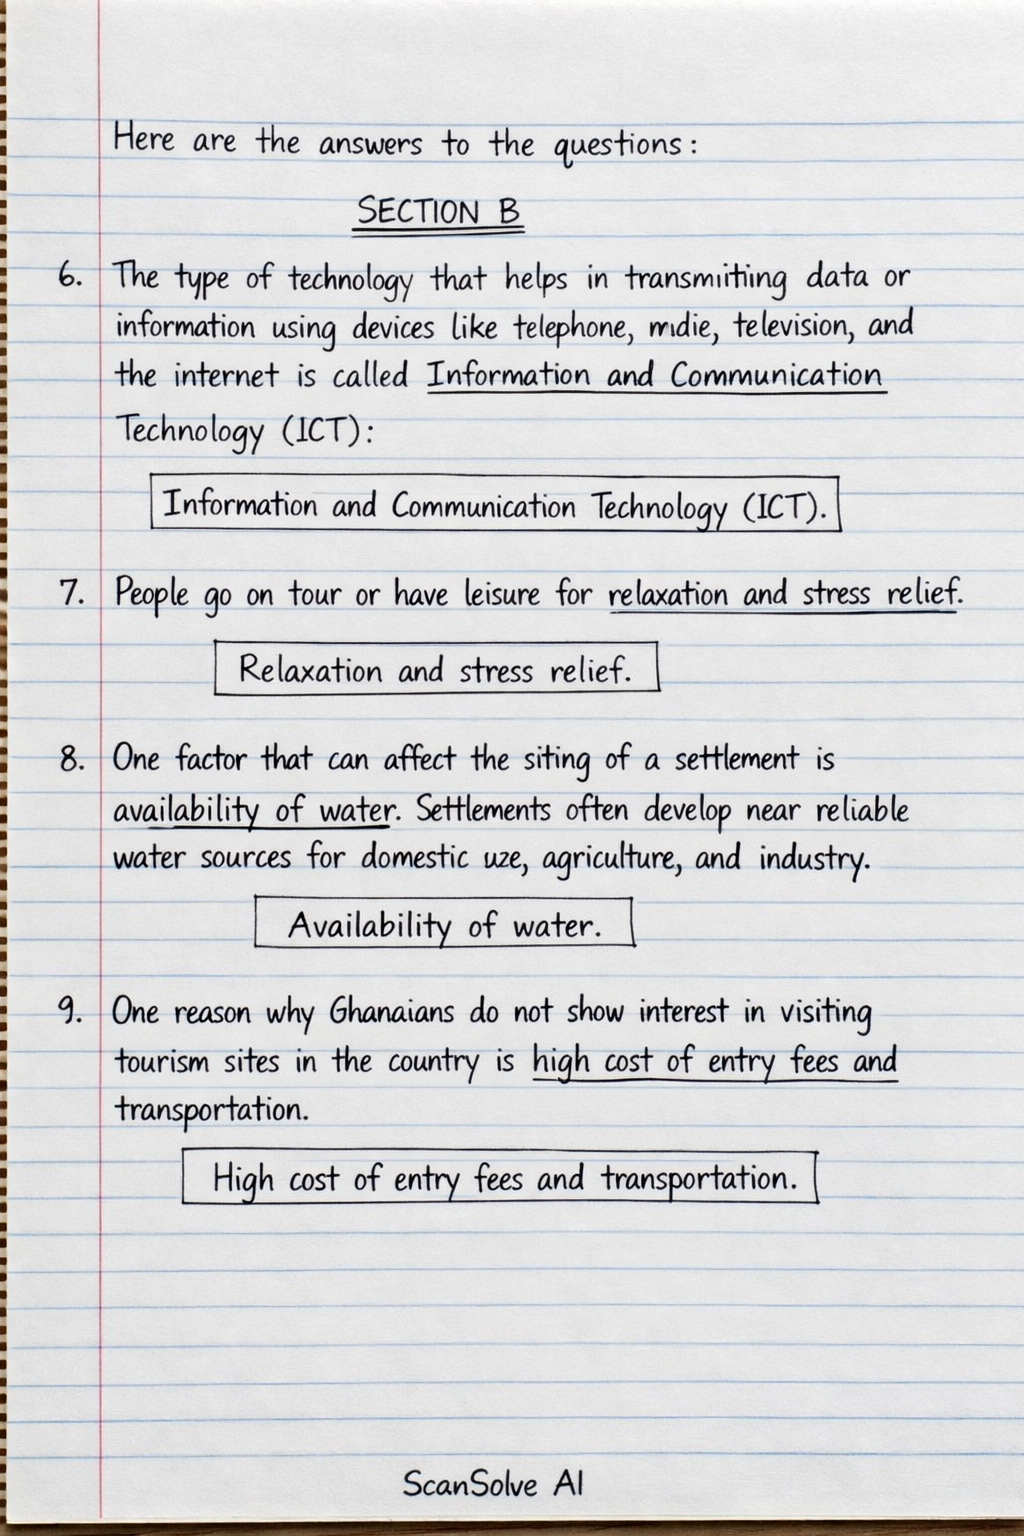 Here are the answers to the questions:
SECTION B
6. The type of technology that helps in transmiiting data or
information using devices like telephone, midie, television, and
the internet is called Information and Communication
Technology (ICT):
Information and Communication Technology (ICT).
7. People go on tour or have leisure for relaxation and stress relief.
Relaxation and stress relief.
8. One factor that can affect the siting of a settlement is
availability of water. Settlements often develop near reliable
water sources for domestic uze, agriculture, and industry.
Availability of water.
9. One reason why Ghanaians do not show interest in visiting
tourism sites in the country is high cost of entry fees and
transportation.
High cost of entry fees and transportation.
ScanSolve AI